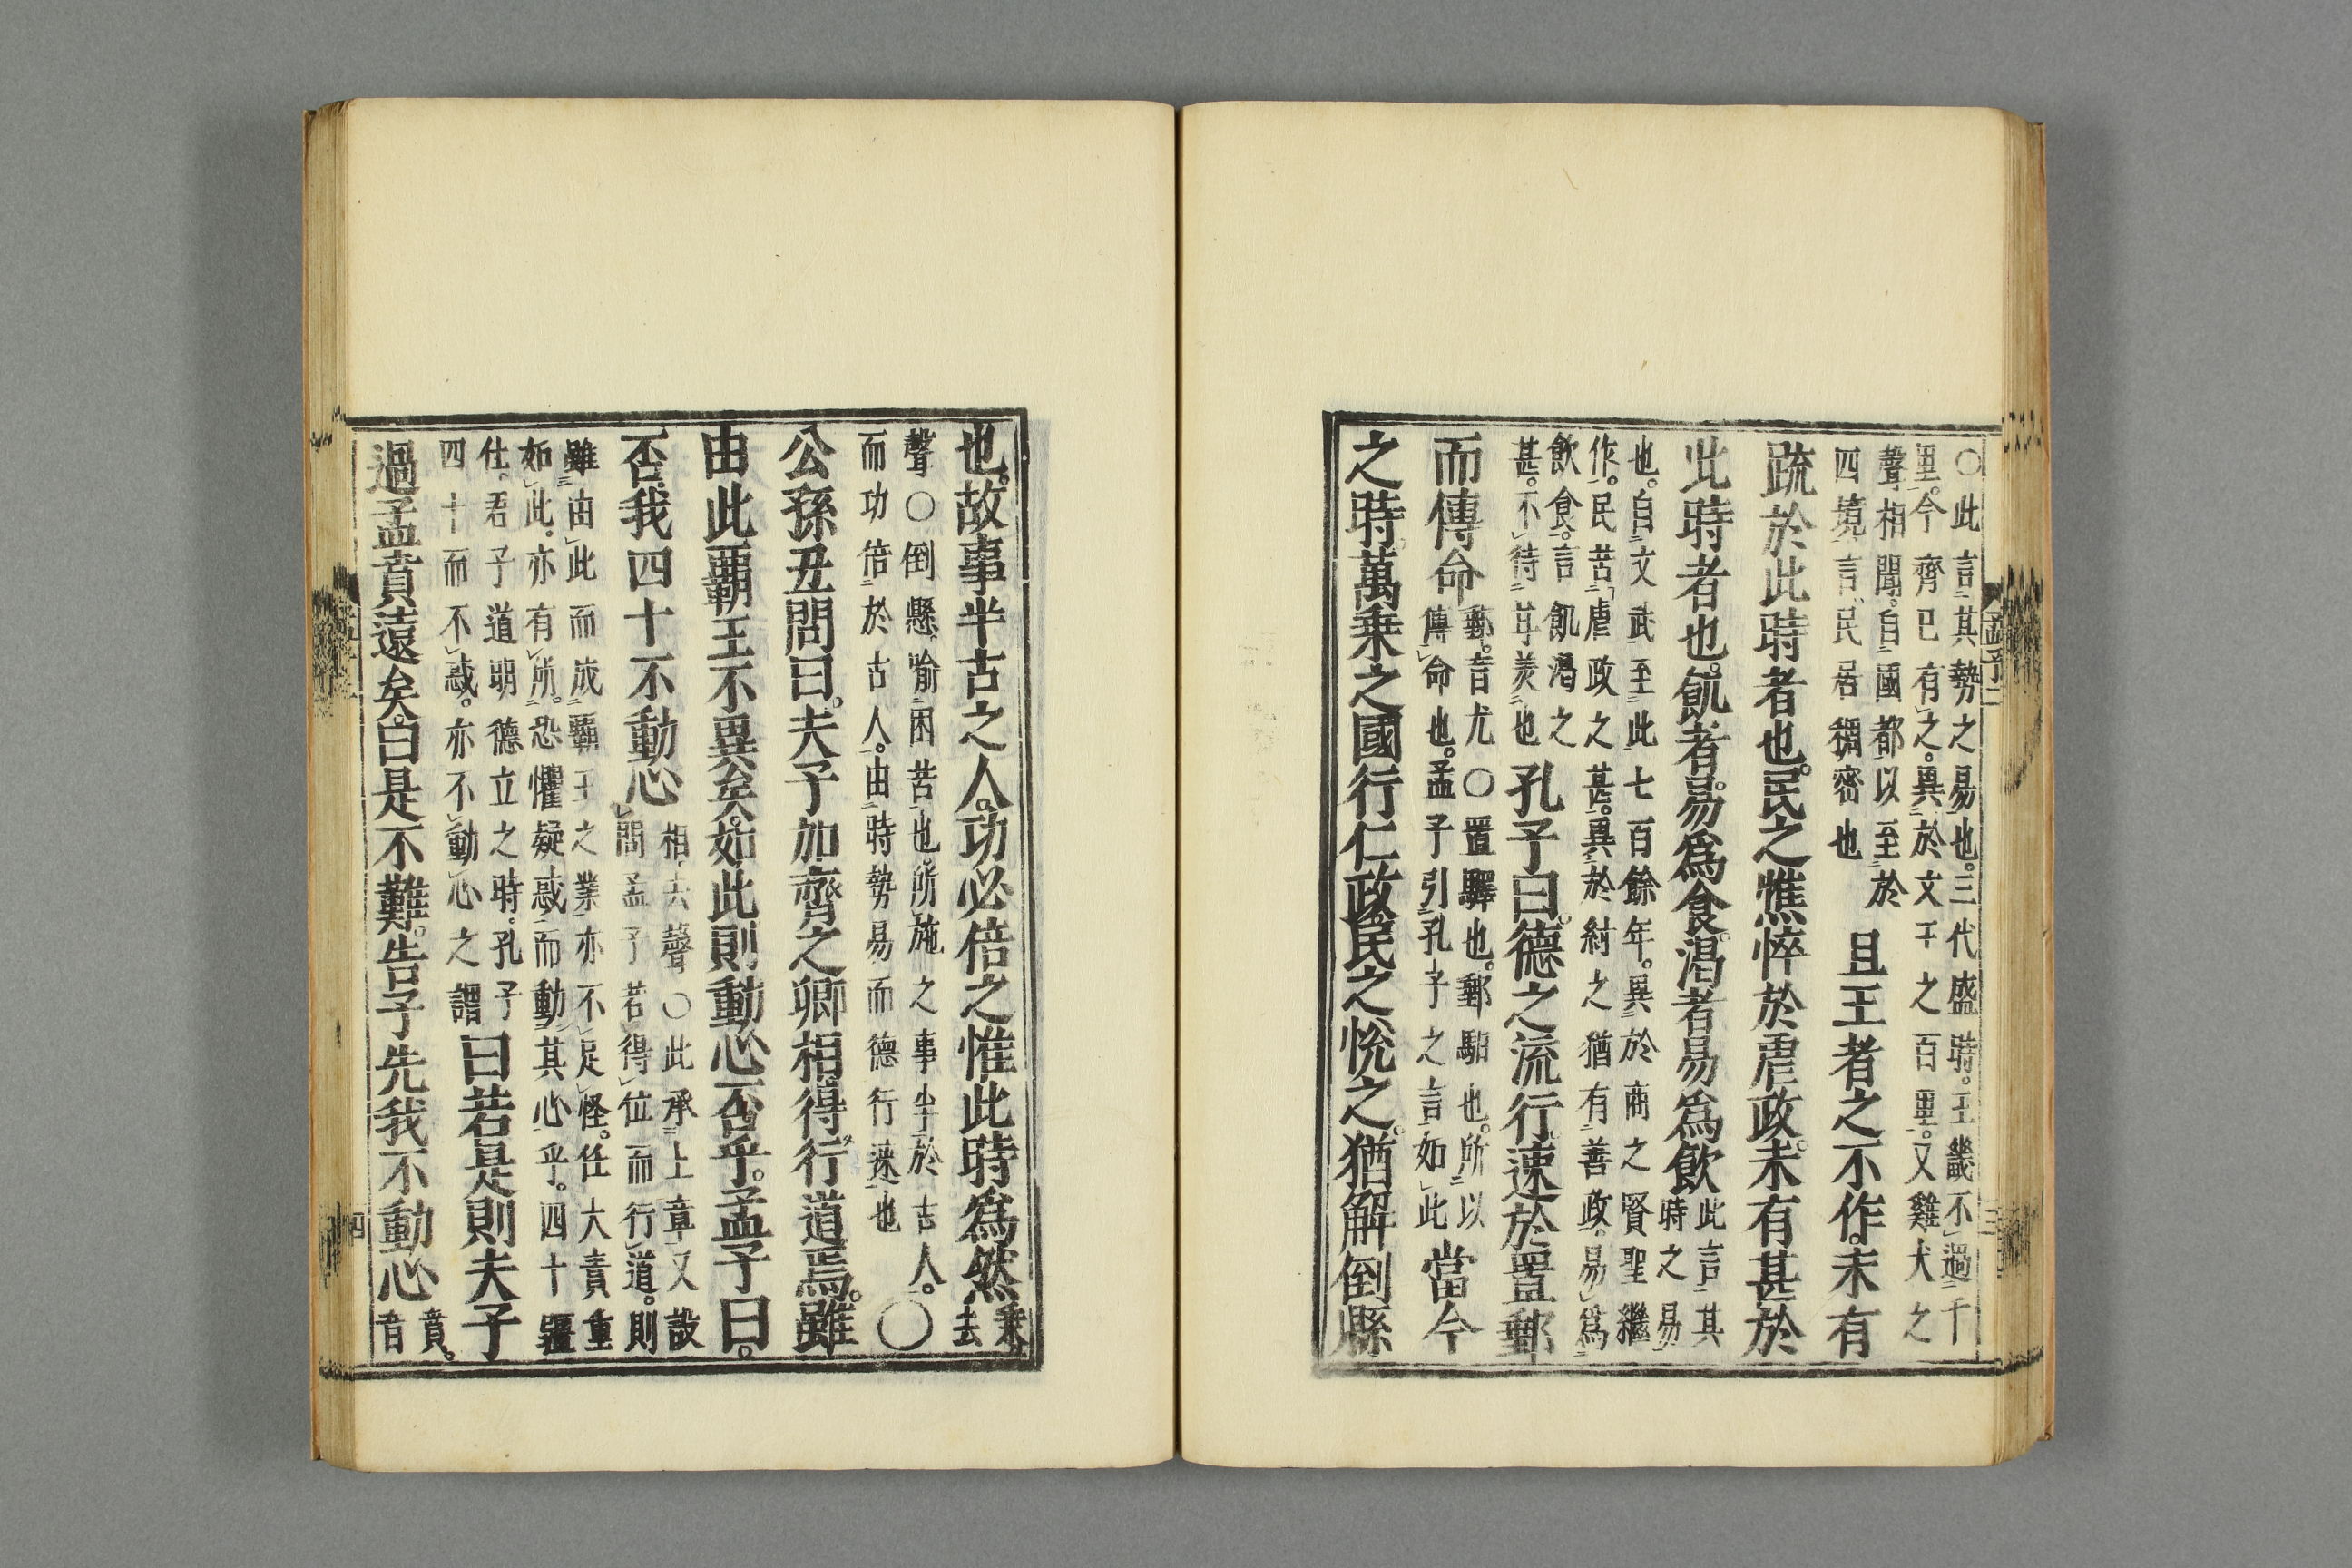 ○此言其勢之易也。三代盛時。王畿不過千
里。今齊已有之。異於文王之百里。又雞犬之
聲相聞。自國都以至於
四境。言民居稠密也
且王者之不作。未有
疏於此時者也。民之憔悴於虐政。未有甚於
此時者也。飢者。易爲食。渴者易爲飲
此言其
時之易
也。自文武至此七百餘年。異於商之賢聖繼
作。民苦虐政之甚。異於紂之猶有善政。易爲
飲食。言飢渴之
甚。不待甘美也
孔子曰。德之流行。速於置郵
而傳命
郵。音尤○置驛也。郵馹也。所以
傳命也。孟子引孔子之言如此
當今
之時。萬乗之國行仁政。民之悅之。猶解倒縣
孟子二
三
也。故事半古之人。功必倍之。惟此時爲然
乗
去
聲○倒懸。喻困苦也。所施之事半於古人。
而功倍於古人。由時勢易而德行速也
○
公孫丑問曰。夫子加齊之卿相。得行道焉。雖
由此霸王不異矣。如此則動心否乎。孟子曰。
否。我四十不動心
相去聲○此承上章又設
問孟子若得位而行道。則
雖由此而成霸王之業亦不足怪。任大責重
如此。亦有所。恐懼疑惑而動其心乎。四十疆
仕。君子道明德立之時。孔子
四十而不惑。亦不動心之謂
曰若是則夫子
過孟賁遠矣。曰是不難。告子先我不動心
賁。
音
四